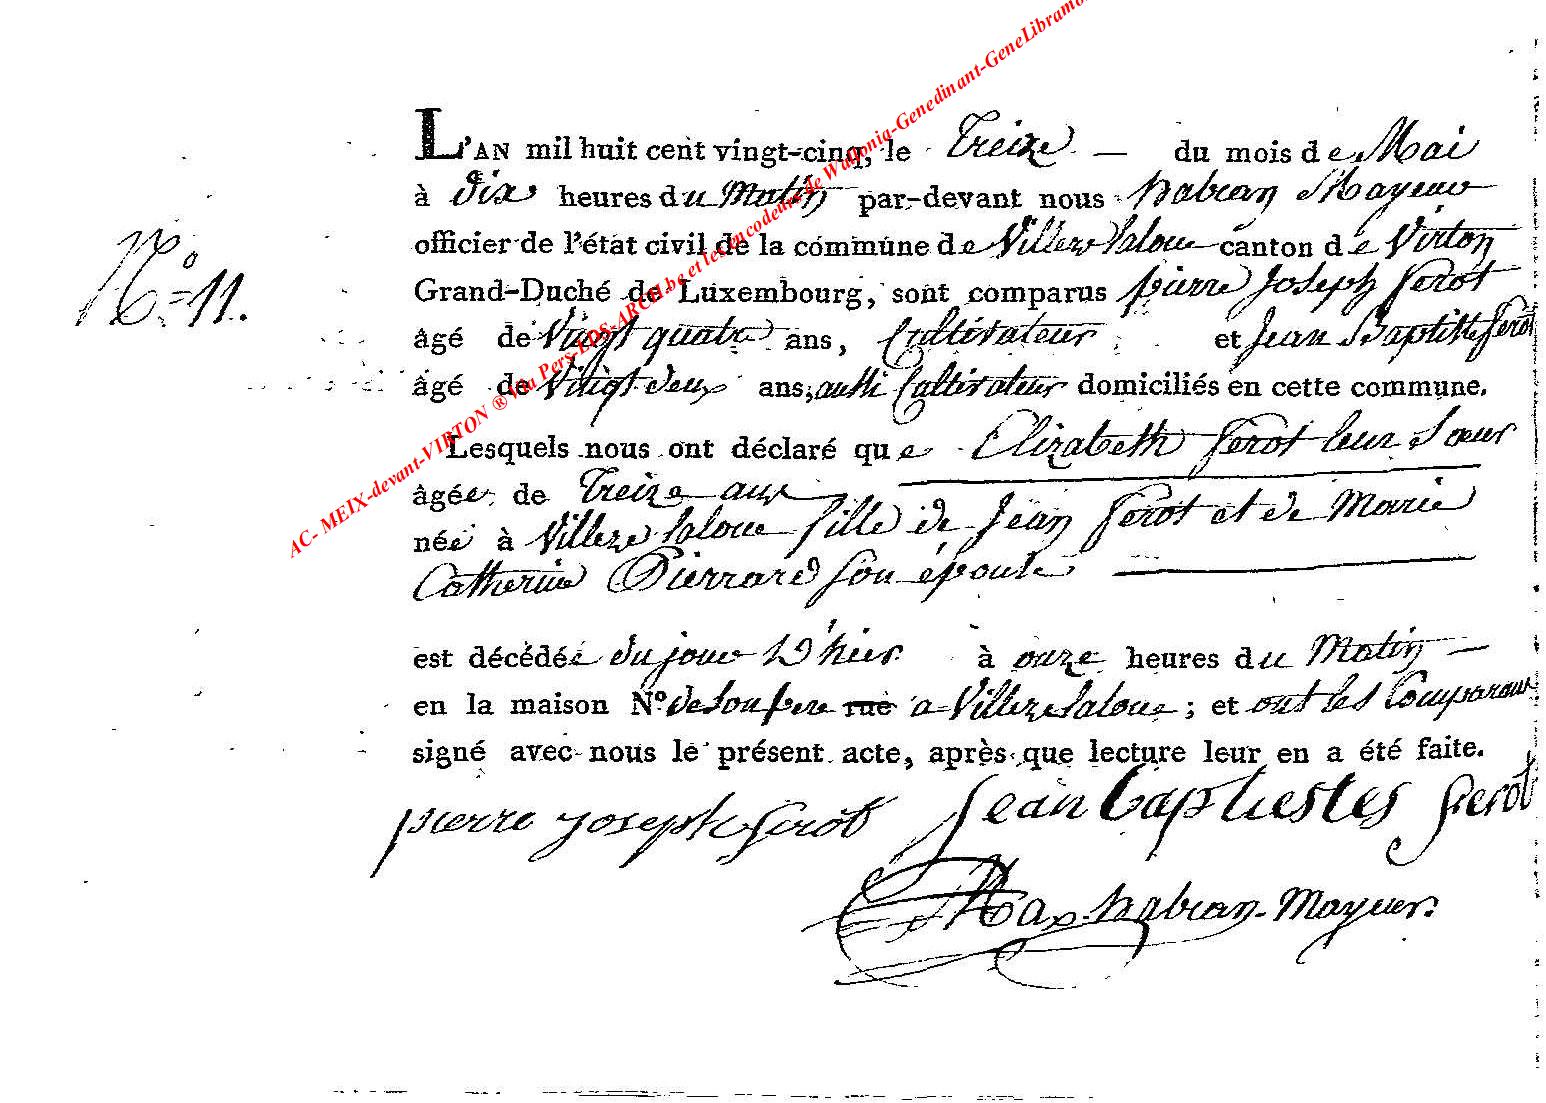 AC- MEIX-devant-VIRTON ® Via Pers-LDS-ARCH.be et les encodeurs de Wallonia-Genedinant-GeneLibramo
L'AN mil huit cent vingt-cinq, le Treize — du mois de Mai
à dix heures du Matin par-devant nous habran Mayeur
officier de l'état civil de la commune de Villers laloue canton de Virton
Grand-Duché de Luxembourg, sont comparus pierre Joseph Gerot
âgé de Vingt quatre ans, Cultivateur et Jean Baptiste Gerot
âgé de Vingt deux ans, aussi Cultivateur domiciliés en cette commune.
Lesquels nous ont déclaré que Elizabeth Gerot leur Soeur
âgée de Treize ans
N.o = 11.
née à Villers laloue fille de Jean Gerot et de Marie
Catherine Pierrard son épouse
est décédée du jour D'hier à onze heures du Matin —
en la maison N.o de son pere rue a Villers laloue ; et ont les Comparans
signé avec nous le présent acte, après que lecture leur en a été faite.
pierre joseph gerot Jean baptiestes gerot
habran Mayeur.